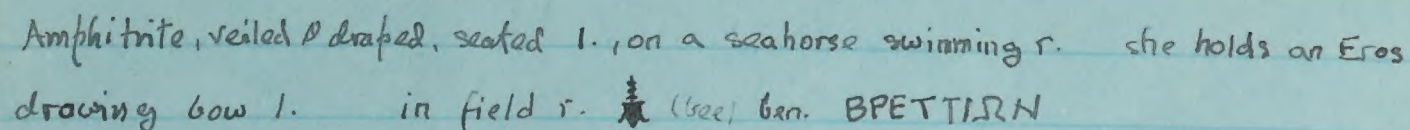 Amphitrite, veiled & draped, seated l., on a seahorse swimming r. she holds an Eros
drawing bow l. in field r. (bee) ben. BPETTIΩN